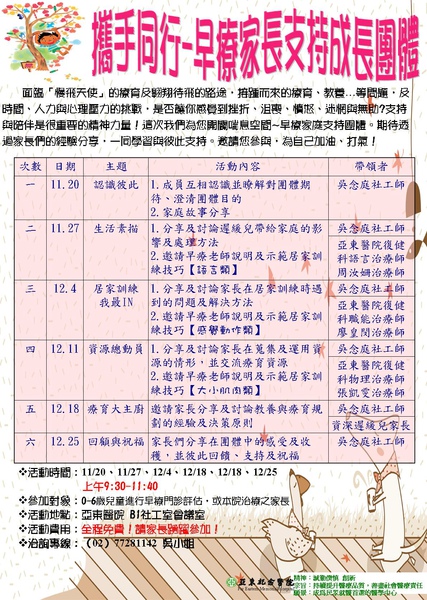 攜手同行-早療家長支持成長團體
面臨「慢飛天使」的療育及翱翔待飛的路途，擁踵而來的療育、教養...等問題，及
時間、人力與心理壓力的挑戰，是否讓你感覺到挫折、沮喪、憤怒、迷惘與無助?支持
與陪伴是很重要的精神力量！這次我們為您開闢喘息空間~早療家庭支持團體。期待透
過家長們的經驗分享，一同學習與彼此支持。邀請您參與，為自己加油、打氣！
次數 日期 主題 活動內容 帶領者
一 11.20 認識彼此 1.成員互相認識並瞭解對團體期
待、澄清團體目的
2.家庭故事分享
吳念庭社工師
二 11.27 生活素描 1.分享及討論遲緩兒帶給家庭的影
響及處理方法
2.邀請早療老師說明及示範居家訓
練技巧【語言類】
吳念庭社工師
亞東醫院復健
科語言治療師
周汝姍治療師
三 12.4 居家訓練
我最IN
1.分享及討論家長在居家訓練時遇
到的問題及解決方法
2.邀請早療老師說明及示範居家訓
練技巧【感覺動作類】
吳念庭社工師
亞東醫院復健
科職能治療師
廖皇閔治療師
四 12.11 資源總動員 1.分享及討論家長在蒐集及運用資
源的情形，並交流療育資源
2.邀請早療老師說明及示範居家訓
練技巧【大小肌肉類】
吳念庭社工師
亞東醫院復健
科物理治療師
張凱雯治療師
五 12.18 療育大主廚 邀請家長分享及討論教養與療育規
劃的經驗及決策原則
吳念庭社工師
資深遲緩兒家長
六 12.25 回顧與祝福 家長們分享在團體中的感受及收
穫，並彼此回饋、支持及祝福
吳念庭社工師
❖活動時間：11/20、11/27、12/4、12/18、12/18、12/25
上午9:30-11:40
❖參加對象：0-6歲兒童進行早療門診評估，或本院治療之家長
❖活動地點：亞東醫院 B1社工室會議室
❖活動費用：全程免費！請家長踴躍參加！
❖洽詢專線：（02）77281142 吳小姐
亞東紀念醫院
Far Eastern Memorial Hospital
精神：誠勤樸慎 創新
宗旨：持續提升醫療品質，善盡社會醫療責任
願景：成為民眾就醫首選的醫學中心